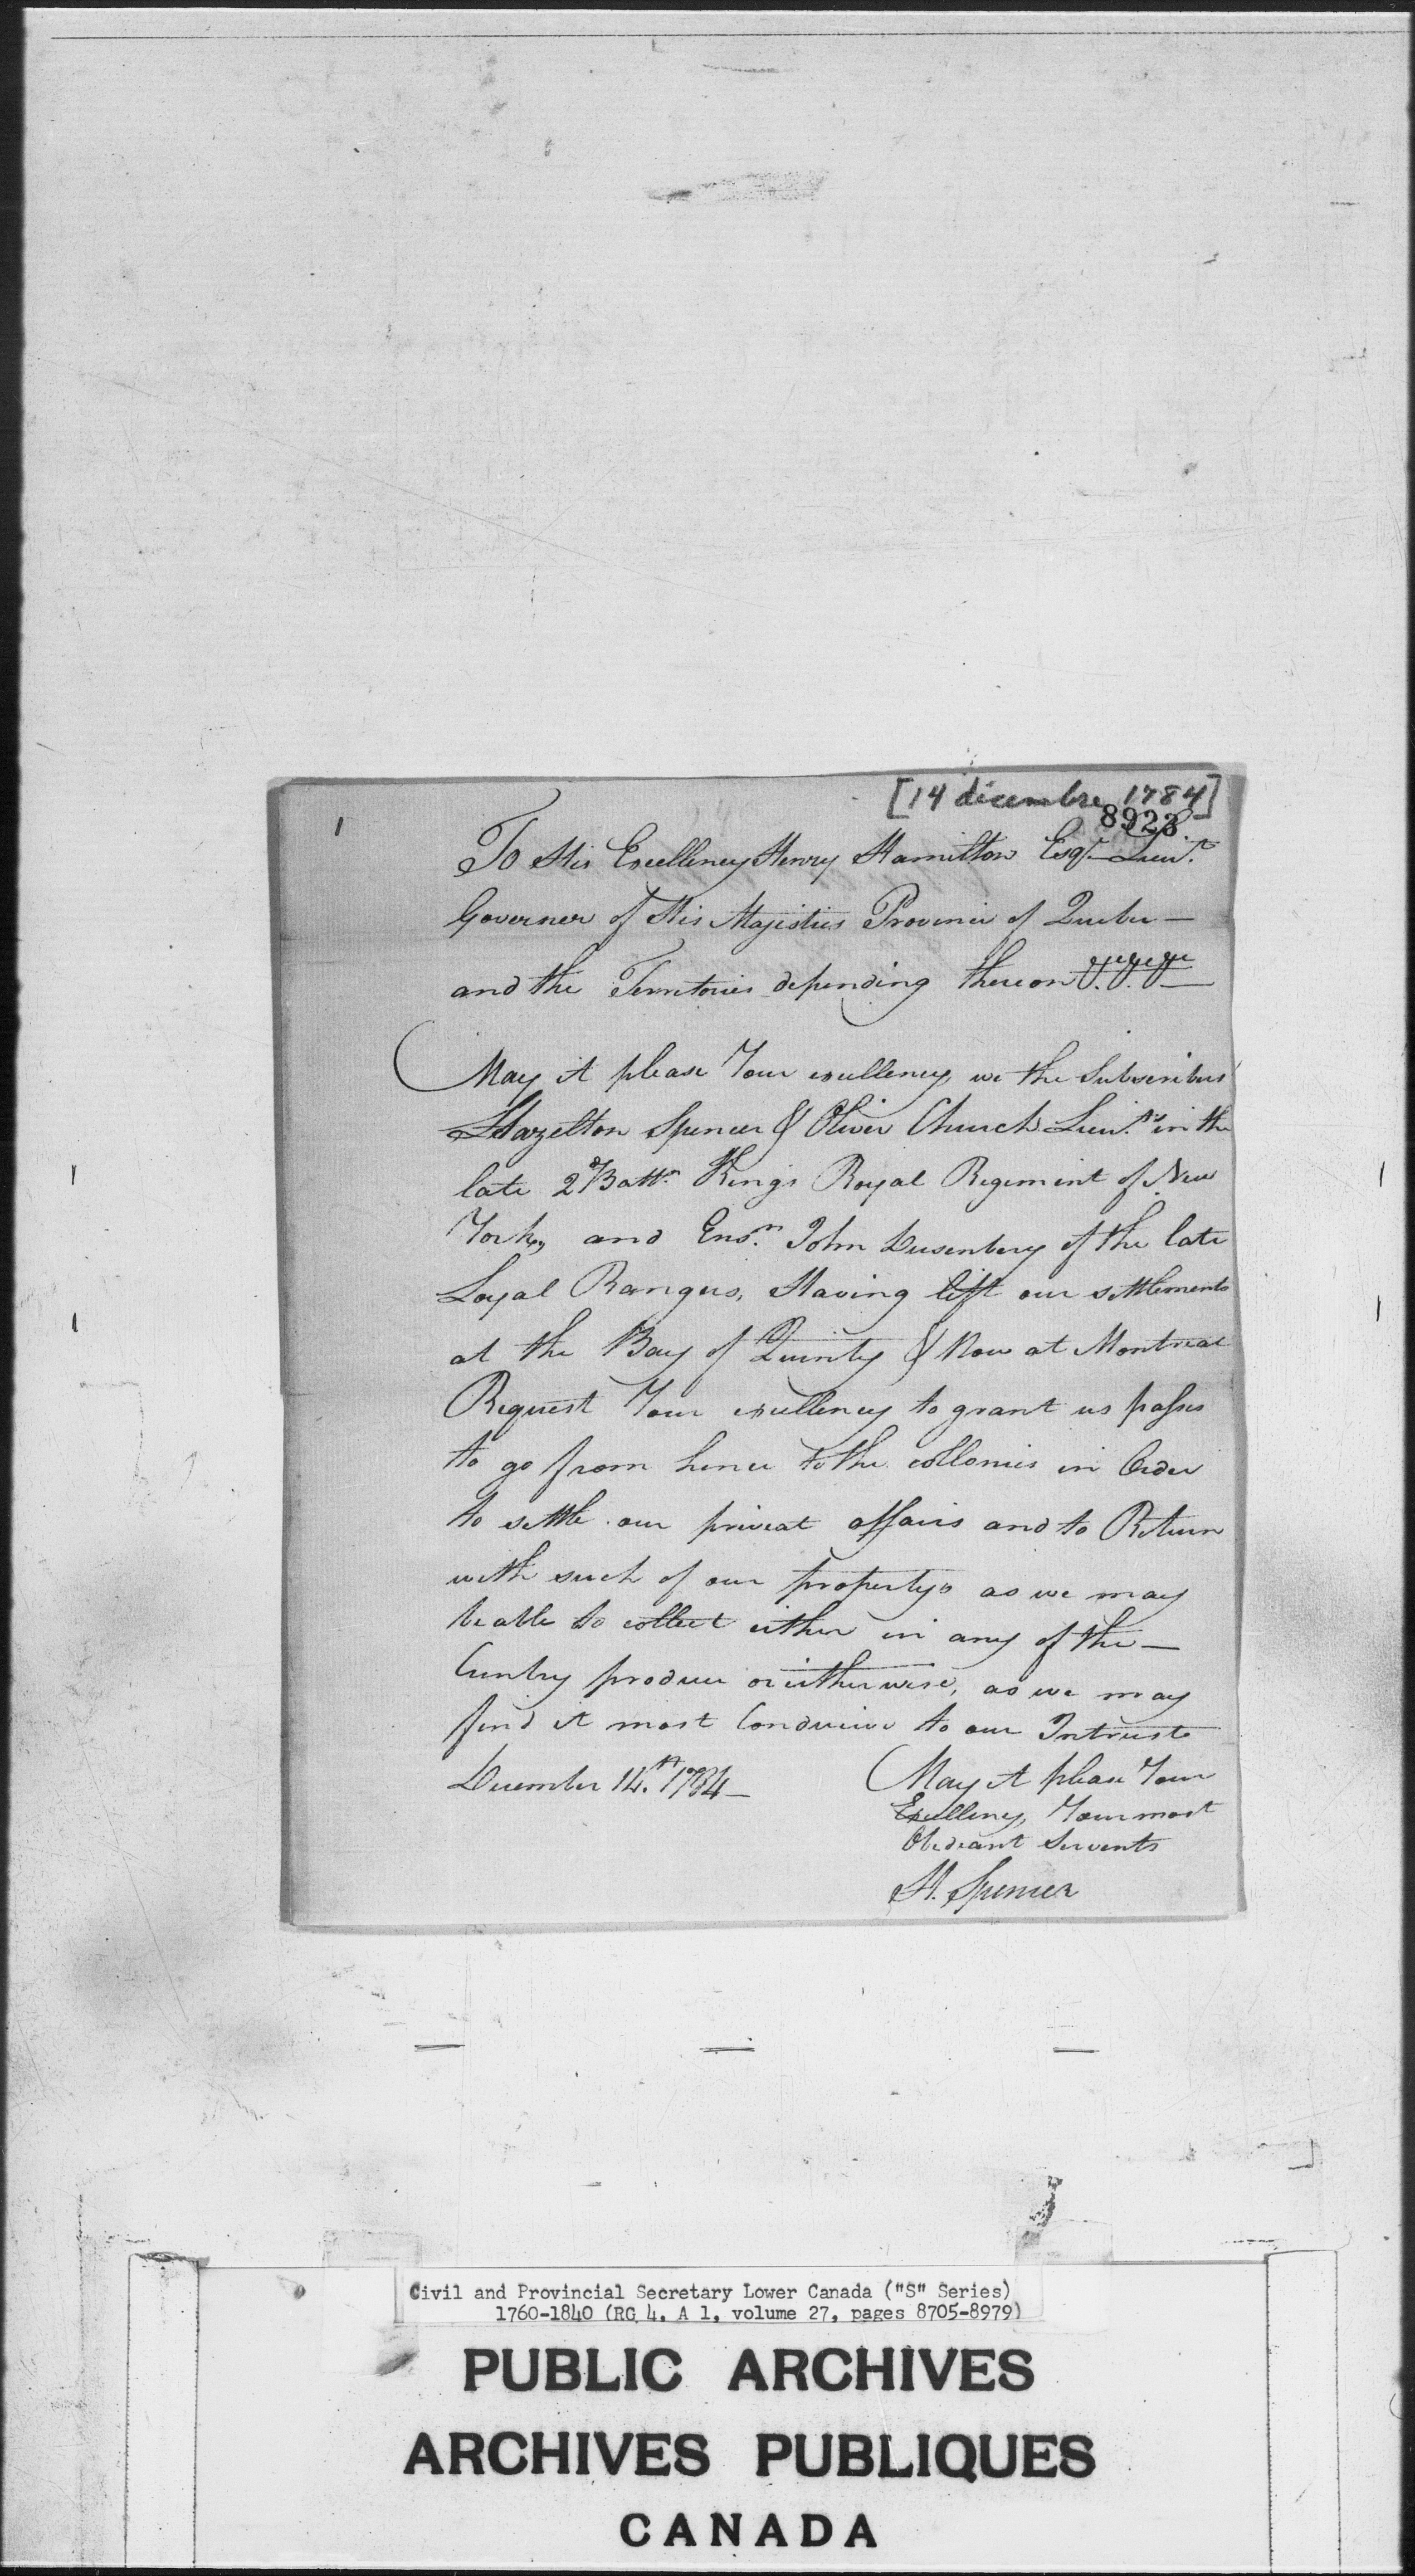 [14 décembre 1784]
8923.
To His Excellency Henry Hamilton Esqr. Lieut.
Governer of His Majisties Province of Quebec —
and the Territories depending thereon &c. &c. &c —
May it please Your excellency we the Subscribers
Hazelton Spencer & Oliver Church Lieuts. in the
late 2d Battn. Kings Royal Regiment of New
York, and Ensn. John Dusenbery of the late
Loyal Rangers, Having lift our settlements
at the Bay of Quinty & Now at Montreal
Request Your excellency to grant us passes
to go from hence to the collonies in Order
to settle our priveat affairs and to Return
with such of our propertys as we may
be able to collect either in any of the —
Cuntry produce or eitherwise, as we may
find it most Conducive to our Intrusts
December 14th. 1784 —
May it please Your
Excellency, Your most
Obedeant Servents
H. Spencer
Civil and Provincial Secretary Lower Canada ("S" Series)
1760-1840 (RG 4, A 1, volume 27, pages 8705-8979)
PUBLIC ARCHIVES
ARCHIVES PUBLIQUES
CANADA